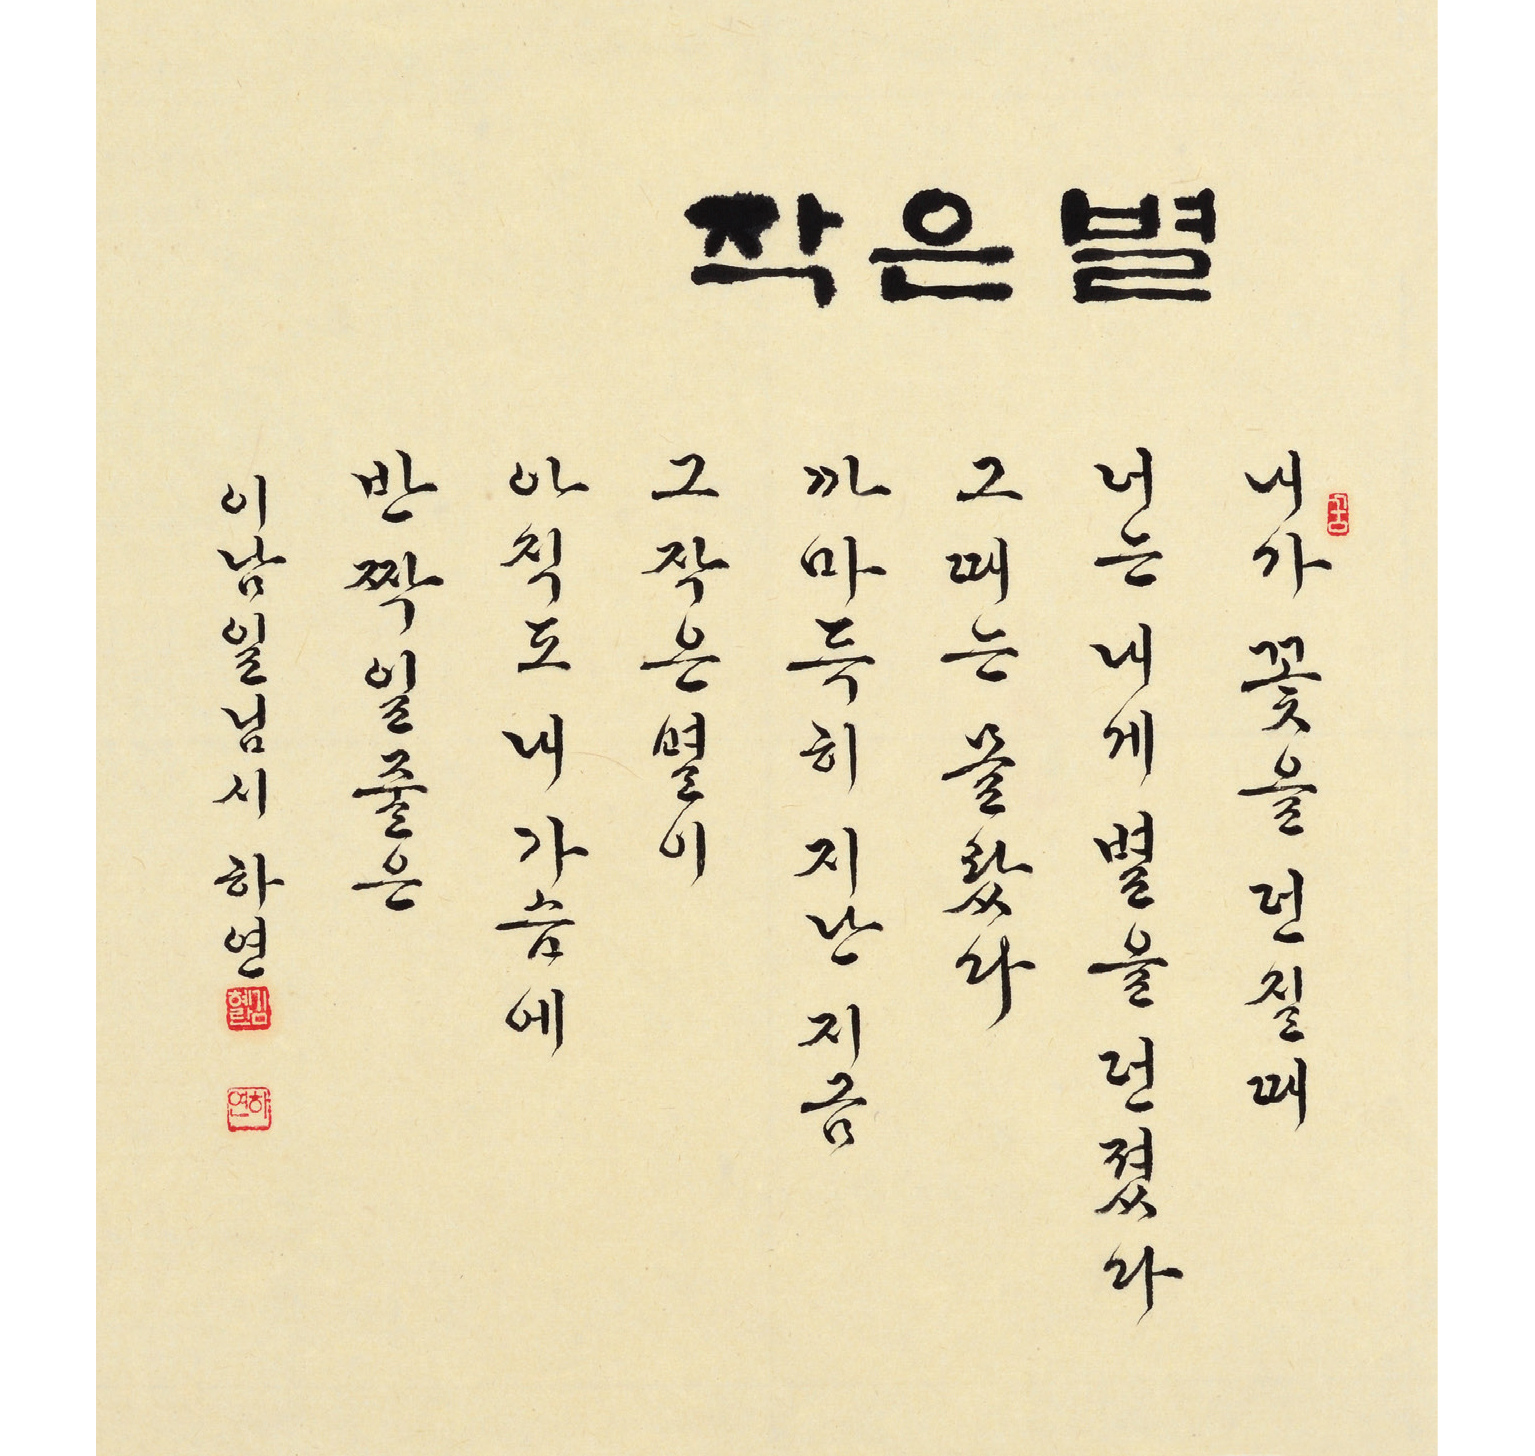 작은별
내가 꽃을 던질때
너는 내게 별을 던졌다
그때는 몰랐다
까마득히 지난 지금
그 작은 별이
아직도 내 가슴에
반짝일 줄은
이남일님 시 하연
하연